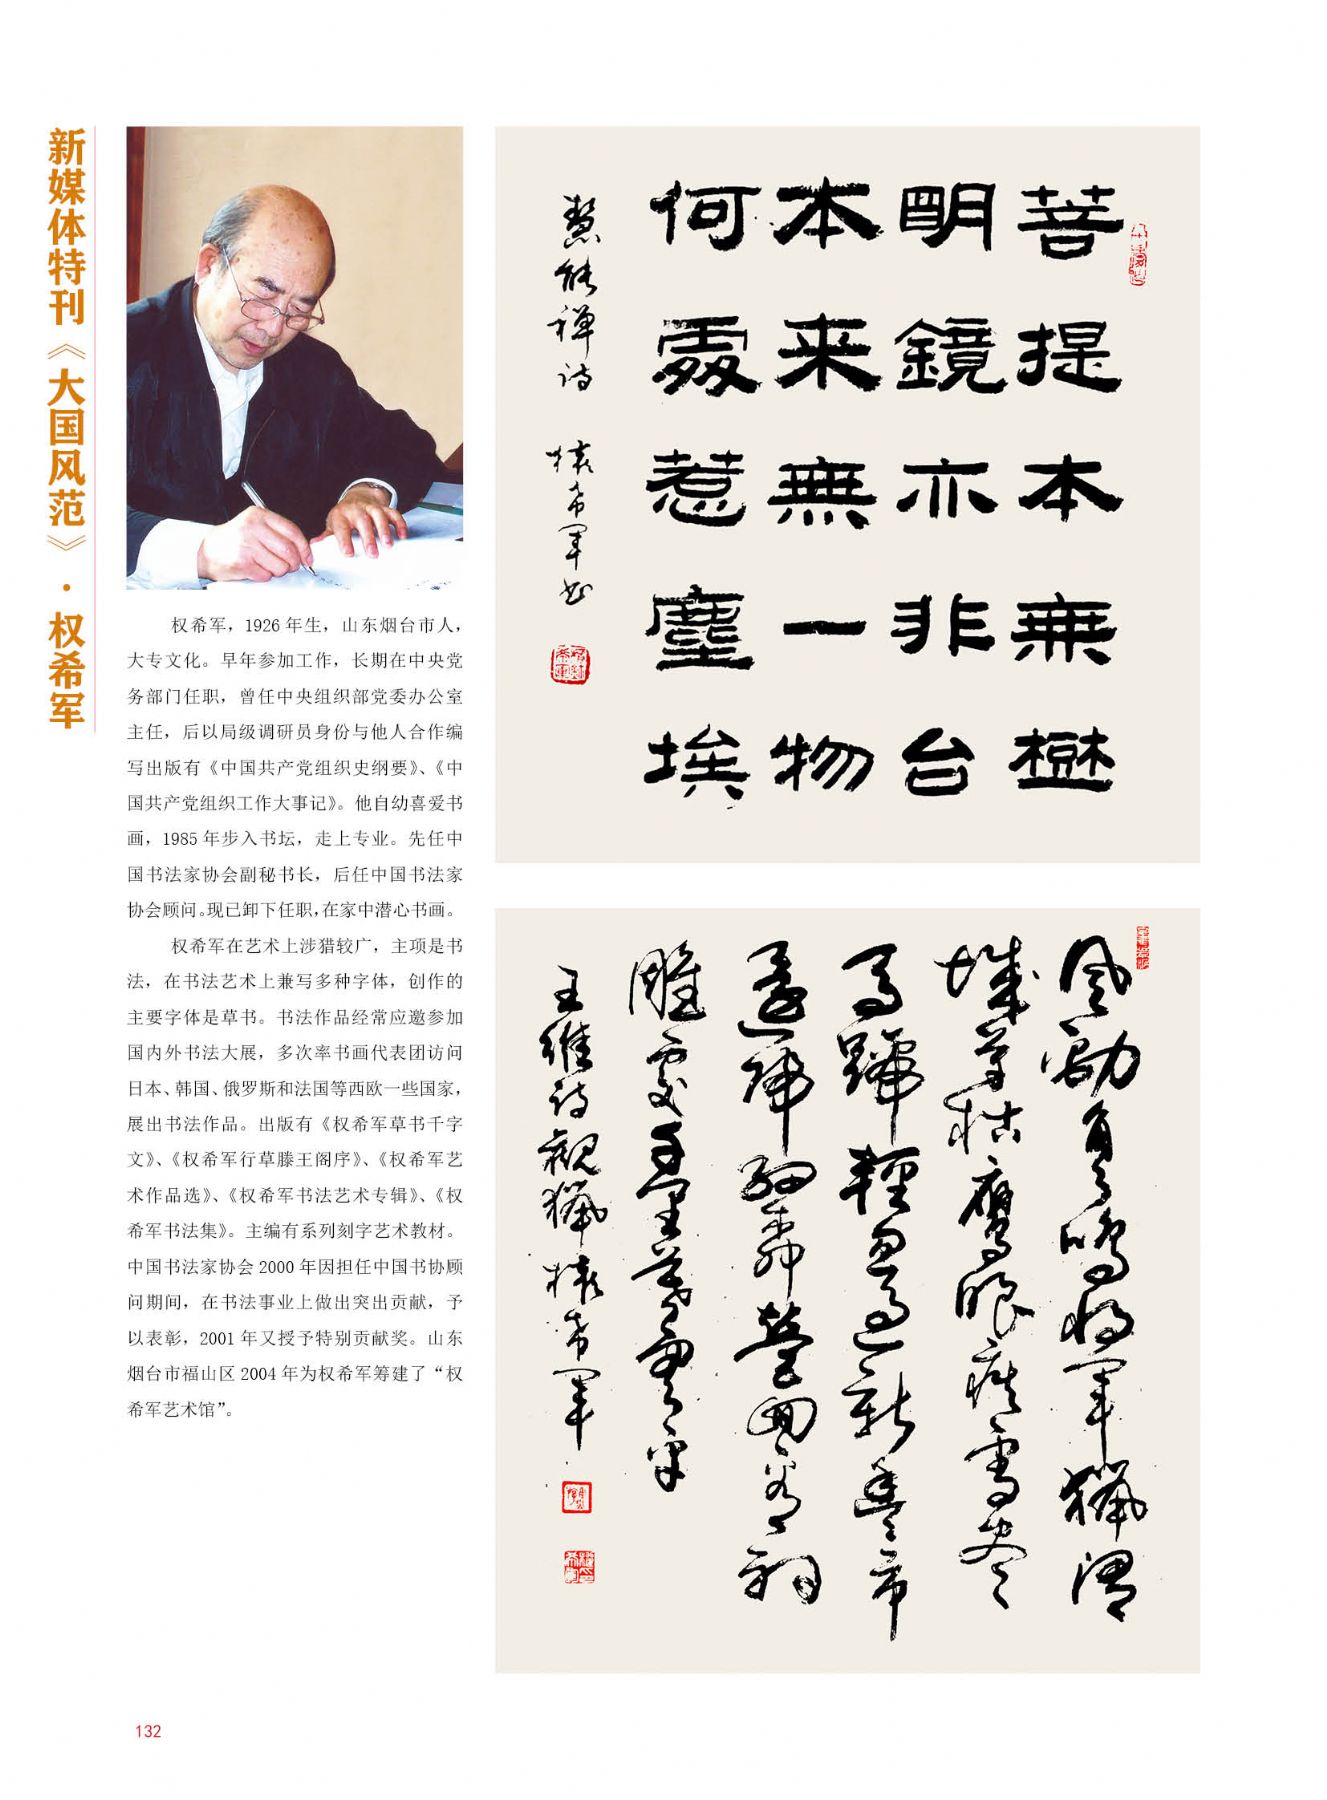 新媒体特刊《大国风范》·权希军
权希军，1926年生，山东烟台市人，
大专文化。早年参加工作，长期在中央党
务部门任职，曾任中央组织部党委办公室
主任，后以局级调研员身份与他人合作编
写出版有《中国共产党组织史纲要》、《中
国共产党组织工作大事记》。他自幼喜爱书
画，1985年步入书坛，走上专业。先任中
国书法家协会副秘书长，后任中国书法家
协会顾问。现已卸下任职，在家中潜心书画。
权希军在艺术上涉猎较广，主项是书
法，在书法艺术上兼写多种字体，创作的
主要字体是草书。书法作品经常应邀参加
国内外书法大展，多次率书画代表团访问
日本、韩国、俄罗斯和法国等西欧一些国家，
展出书法作品。出版有《权希军草书千字
文》、《权希军行草滕王阁序》、《权希军艺
术作品选》、《权希军书法艺术专辑》、《权
希军书法集》。主编有系列刻字艺术教材。
中国书法家协会2000年因担任中国书协顾
问期间，在书法事业上做出突出贡献，予
以表彰，2001年又授予特别贡献奖。山东
烟台市福山区2004年为权希军筹建了“权
希军艺术馆”。
菩提本無樹
明鏡亦非台
本来無一物
何處惹塵埃
慧能禅诗 權希军书
風勁角弓鳴将军獵渭
城草枯鷹眼疾雪尽
馬蹄輕忽過新豐市
還歸細柳營回看射
雕處千里暮雲平
王維诗觀獵 權希军
132